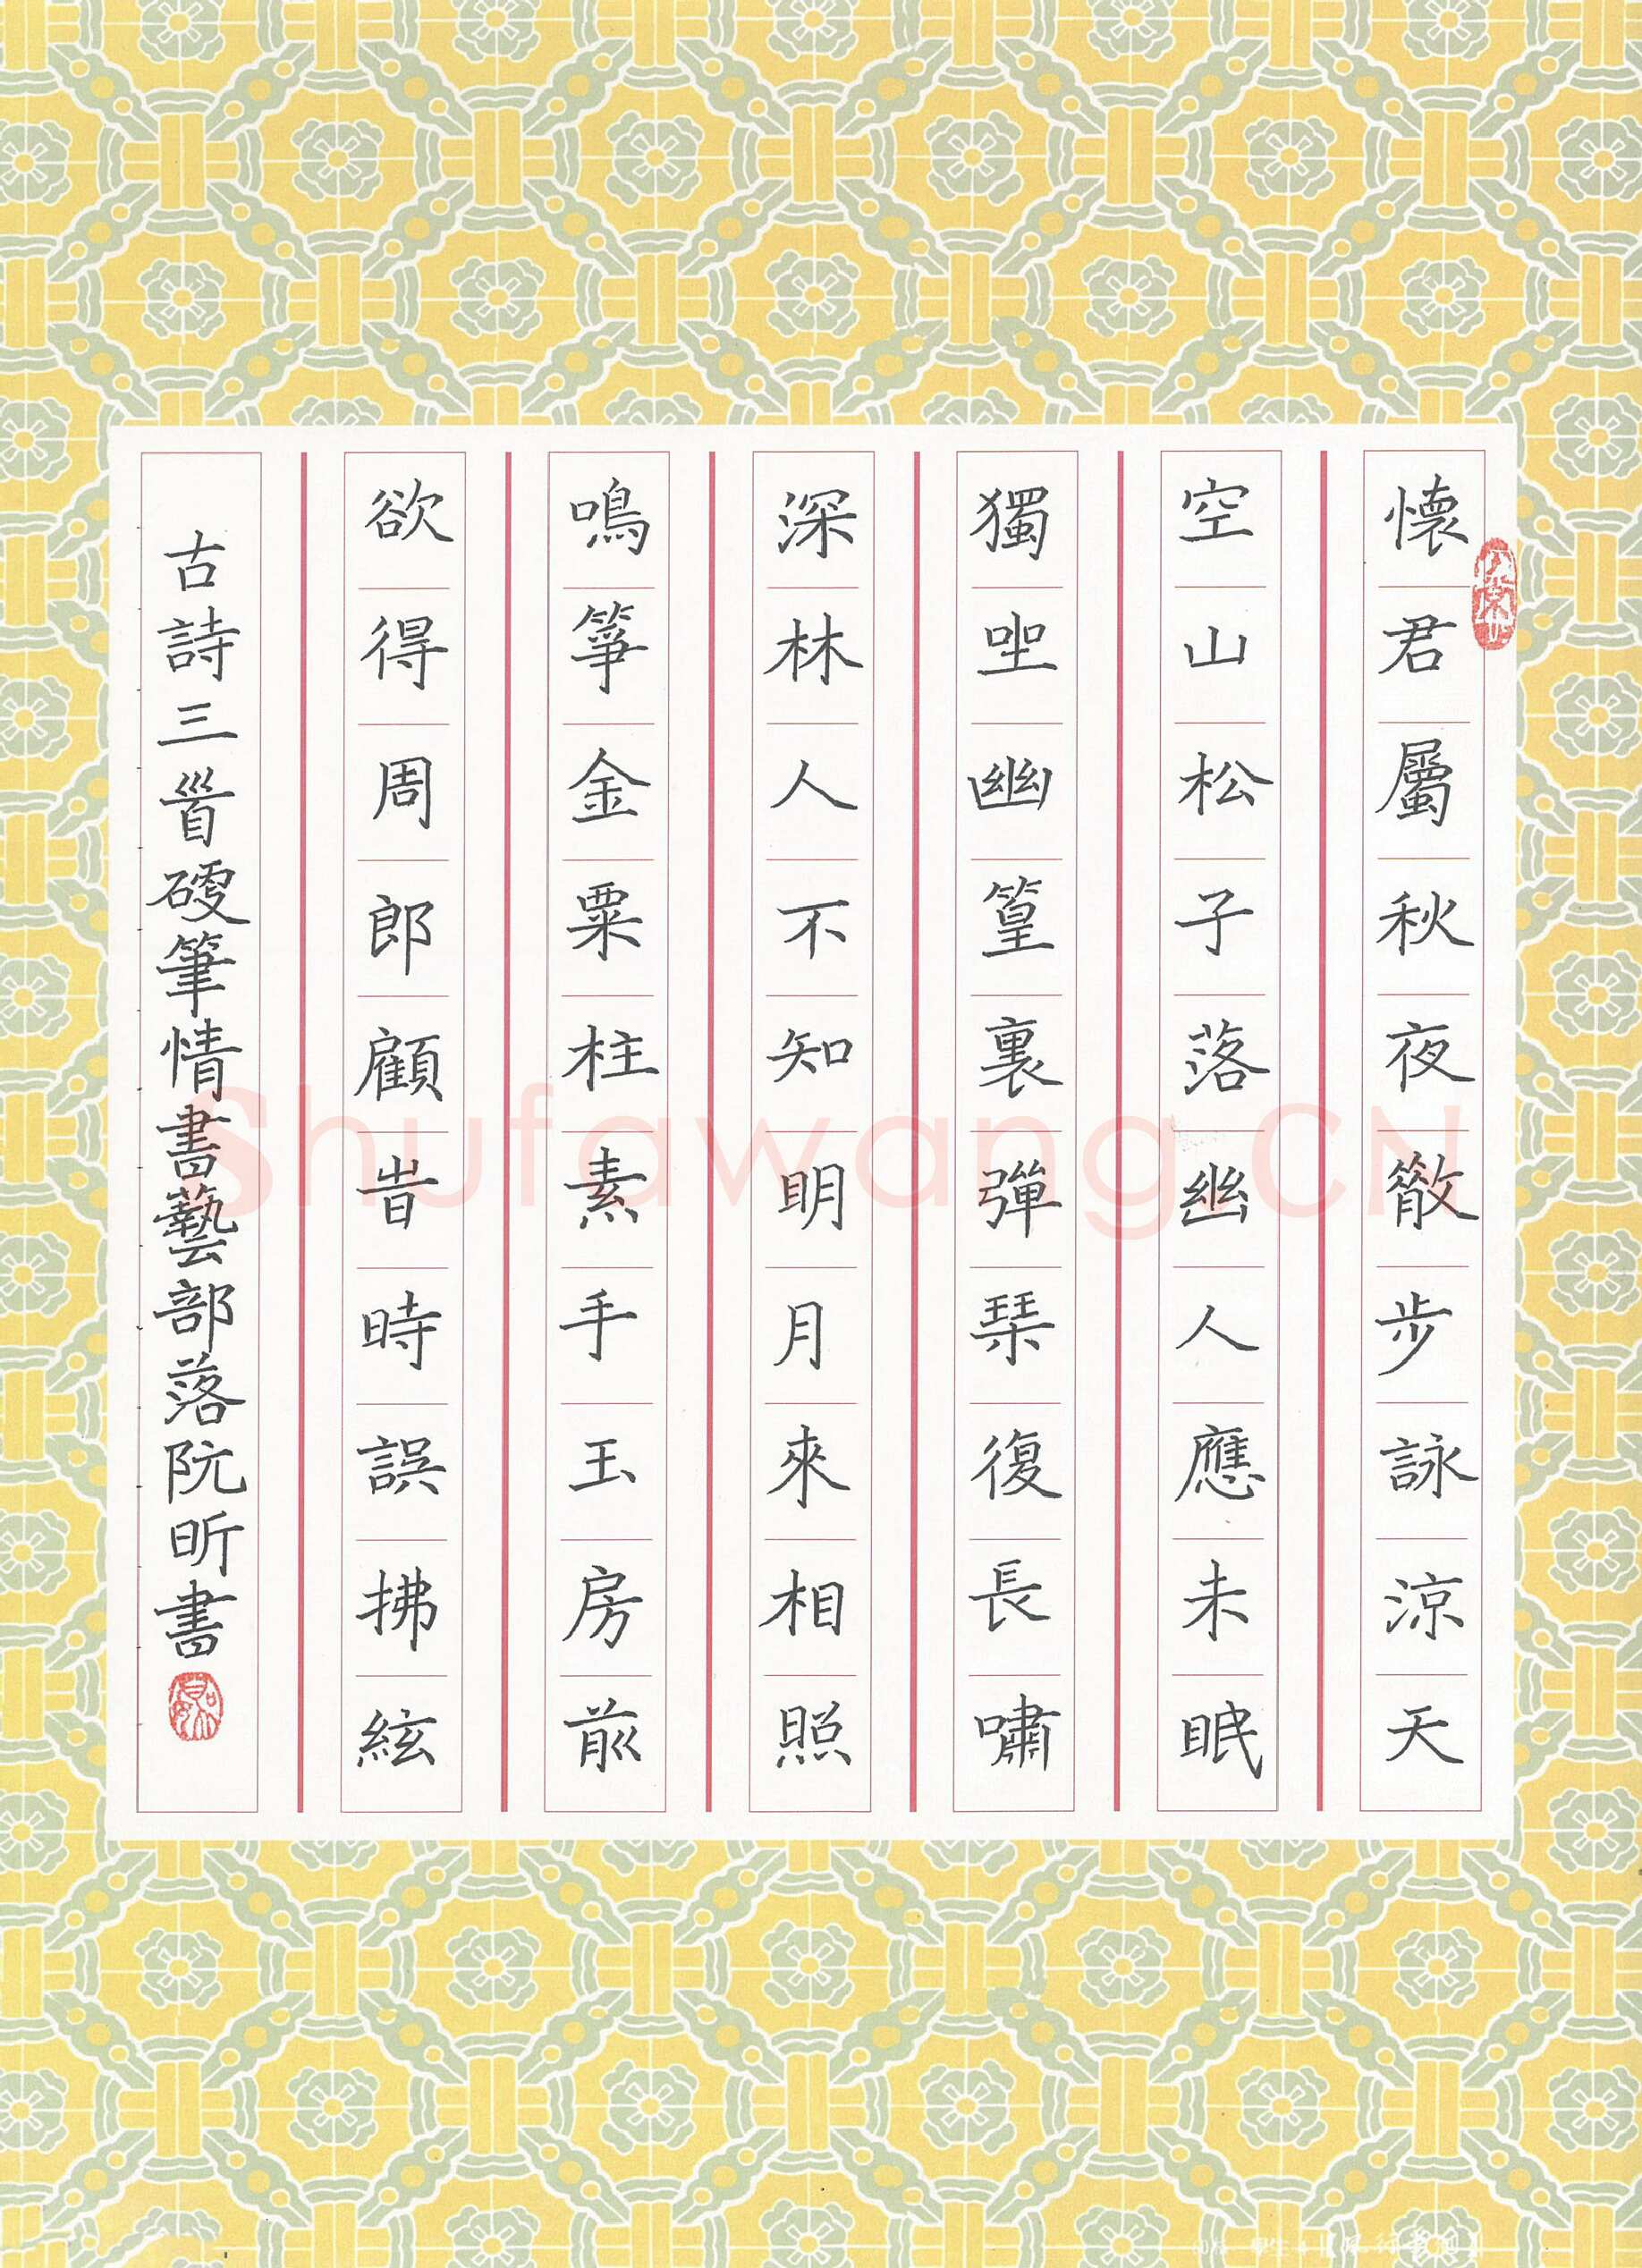 懷君屬秋夜散步詠涼天
空山松子落幽人應未眠
獨坐幽篁裏彈琹復長嘯
深林人不知明月來相照
鳴箏金粟柱素手玉房前
欲得周郎顧昔時誤拂絃
古詩三首硬筆情書藝部落阮昕書
Shufawang.CN